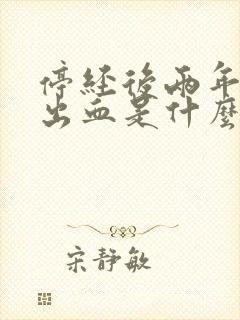 停經後兩年
出血是什麼
宋靜敏